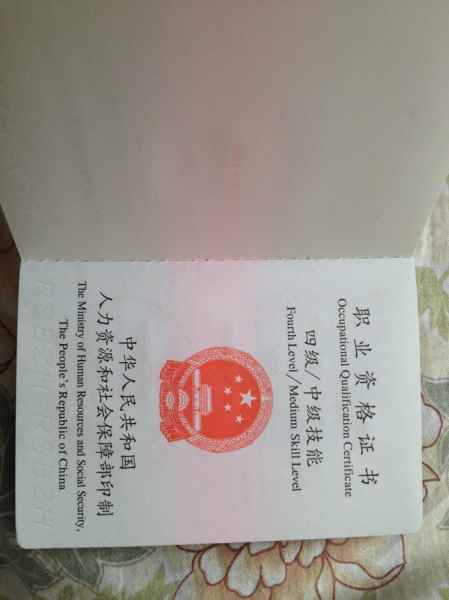 职业资格证书
Occupational Qualification Certificate
四级/中级技能
Fourth Level/Medium Skill Level
中华人民共和国
人力资源和社会保障部印制
The Ministry of Human Resources and Social Security,
The People's Republic of China